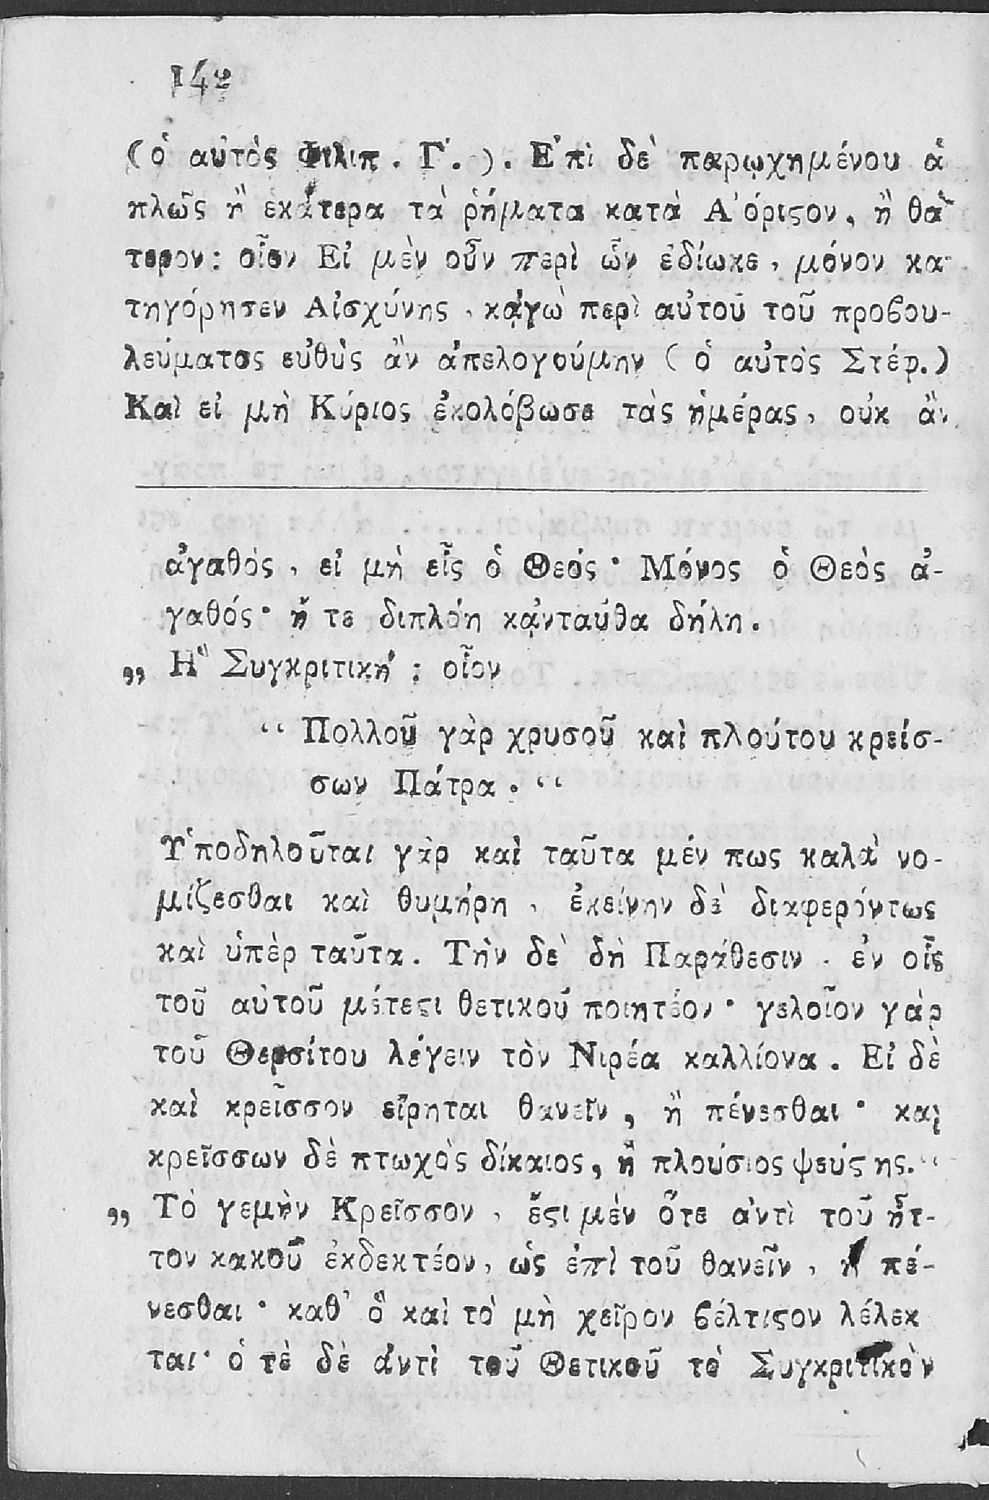 142
(ὁ αὐτὸς Φιλιπ. Γ΄.). Ἐπὶ δὲ παρῳχημένου ἁ
πλῶς ἢ ἑκάτερα τὰ ῥήματα κατὰ Ἀόριϛον, ἢ θά
τερον: οἷον Εἰ μὲν οὖν περὶ ὧν ἐδίωκε, μόνον κα
τηγόρησεν Αἰσχύνης, κᾀγὼ περὶ αὐτοῦ τοῦ προβου-
λεύματος εὐθὺς ἂν ἀπελογούμην (ὁ αὐτὸς Στέφ.)
Καὶ εἰ μὴ Κύριος ἐκολόβωσε τὰς ἡμέρας, οὐκ ἂν
ἀγαθὸς, εἰ μὴ εἷς ὁ Θεός· Μόνος ὁ Θεὸς ἀ-
γαθός· ἥ τε διπλόη κᾀνταῦθα δήλη.
,, Ἡ Συγκριτική: οἷον
“ Πολλοῦ γὰρ χρυσοῦ καὶ πλούτου κρείσ-
σων Πάτρα. “
Ὑποδηλοῦται γὰρ καὶ ταῦτα μέν πως καλὰ νο-
μίζεσθαι καὶ θυμήρη, ἐκείνην δὲ διαφερόντως
καὶ ὑπὲρ ταῦτα. Τὴν δὲ δὴ Παράθεσιν, ἐν οἷς
τοῦ αὐτοῦ μέτεϛι θετικοῦ ποιητέον· γελοῖον γὰρ
τοῦ Θερσίτου λέγειν τὸν Νιρέα καλλίονα. Εἰ δὲ
καὶ κρεῖσσον εἴρηται θανεῖν, ἢ πένεσθαι· καὶ
κρείσσων δὲ πτωχὸς δίκαιος, ἢ πλούσιος ψεύϛης. “
,, Τὸ γεμὴν Κρεῖσσον, ἔϛι μὲν ὅτε ἀντὶ τοῦ ἧτ-
τον κακοῦ ἐκδεκτέον, ὡς ἐπὶ τοῦ θανεῖν, ἢ πέ-
νεσθαι· καθ’ ὃ καὶ τὸ μὴ χεῖρον βέλτιϛον λέλεκ
ται· ὁ τὲ δὲ ἀντὶ τοῦ Θετικοῦ τὸ Συγκριτικὸν